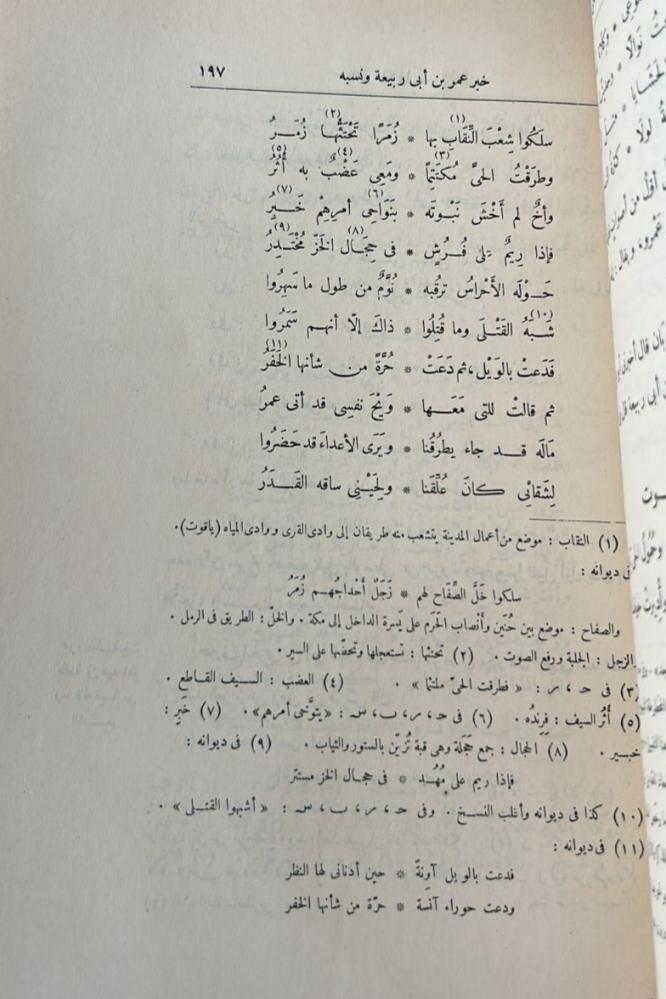 خبر عمر بن أبى ربيعة ونسبه ١٩٧
سلَكوا شِعْبَ النِّقَابِ(١) بها * زُمَرًا تَحْتَثُّها(٢) زُمَرُ
وطرَقْتُ الحىَّ مُكْتَتِمًا(٣) * ومَعِى عَضْبٌ(٤) به أُثُرُ(٥)
وأخٌ لم أَخْشَ نَبْوتَه * بنَوَاحِى(٦) أمرِهِمْ خَبِرُ(٧)
فإذا رِيمٌ على فُرُشٍ * فى حِجَالِ(٨) الخَزِّ مُخْتَدِرُ(٩)
حَوْلَه الأَحْراسُ ترقُبه * نُوَّمٌ من طول ما سَهِروا
شَبَهُ(١٠) القَتْلَى وما قُتِلُوا * ذاكَ إلّا أنهم سَمَرُوا
فَدَعتْ بالوَيْل، ثم دَعَتْ * حُرَّةً من شأنها الخَفَرُ(١١)
ثم قالتْ للتى مَعَها * وَيْحَ نفسِى قد أتى عمرُ
مَالَه قد جاء يطرُقُنا * ويَرَى الأعداءَ قد حَضَرُوا
لِشَقائِى كانَ عُلِّقَنا * ولِحَيْنِى ساقه القَدَرُ
(١) النقاب : موضع من أعمال المدينة يتشعب منه طريقان إلى وادى القرى ووادى المياه (ياقوت).
فى ديوانه :
سلكوا خَلَّ الصِّفَاح لهم * زَجَلٌ أحْداجُهم زُمَرُ
والصفاح : موضع بين حُنَين وأنْصاب الحَرَم على يَسرة الداخل إلى مكة . والخلّ : الطريق فى الرمل .
والزجل : الجلبة ورفع الصوت . (٢) تحتثها : تستعجلها وتحضّها على السير .
(٣) فى حـ ، م ، ر : « فطرقت الحىّ ملتئما » . (٤) العضب : السيف القاطع .
(٥) أُثُر السيف : فِرِندُه . (٦) فى حـ ، م ، ر ، ب ، سـ : «يتوخَّى أمرهم» . (٧) خَبِر :
خبير . (٨) الحجال : جمع حَجَلة وهى قبة تُزيَّن بالستور والثياب . (٩) فى ديوانه :
فإذا ريم على مُهُد * فى حجال الخز مستتر
(١٠) كذا فى ديوانه وأغلب النسخ . وفى حـ ، م ، ر ، ب ، سـ : « أشبهوا القتلى » .
(١١) فى ديوانه :
فدعت بالويل آونةً * حين أدنانى لها النظر
ودعت حوراء آنسة * حرّة من شأنها الخفر